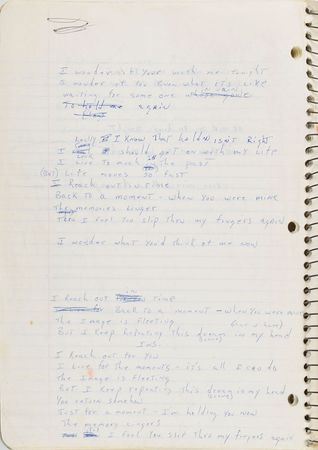 I wonder if your with me tonight
I wonder if you even what it's like
waiting for some one
To hold me again
Really I Know that holdn isn't Right
I should get on with my life
I Live to much in the past
Life moves so fast
I Reach out in time
Back to a moment - when you were mine
The memories linger
Then I feel you slip thru my fingers again
I wonder what you'd think of me now
I Reach out in time
Back to a moment - when you were mine
The Image is fleeting
But I keep repeating this dream in my head
Ins.
I Reach out for you
I Live for the moments - it's all I can do
The Image is fleeting
But I keep repeating this dream in my head
You return somehow
Just for a moment - I'm holding you now
The memory lingers
I feel you slip thru my fingers again